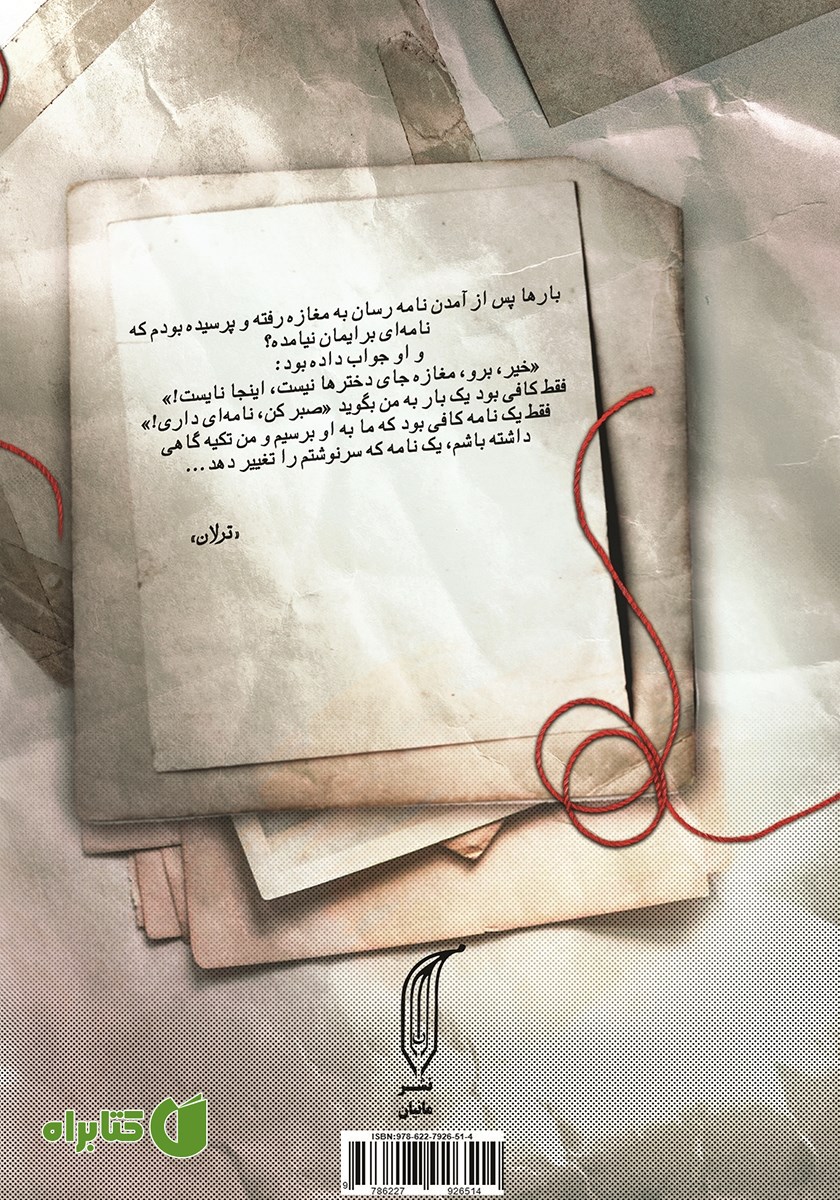 بارها پس از آمدن نامه رسان به مغازه رفته و پرسیده بودم که
نامه‌ای برایمان نیامده؟
و او جواب داده بود:
«خیر، برو، مغازه جای دخترها نیست، اینجا نایست!»
فقط کافی بود یک بار به من بگوید «صبر کن، نامه‌ای داری!»
فقط یک نامه کافی بود که ما به او برسیم و من تکیه گاهی
داشته باشم، یک نامه که سرنوشتم را تغییر دهد...
«ترلان»
نشر
مانیان
کتابراه
ISBN:978-622-7926-51-4
9 786227 926514